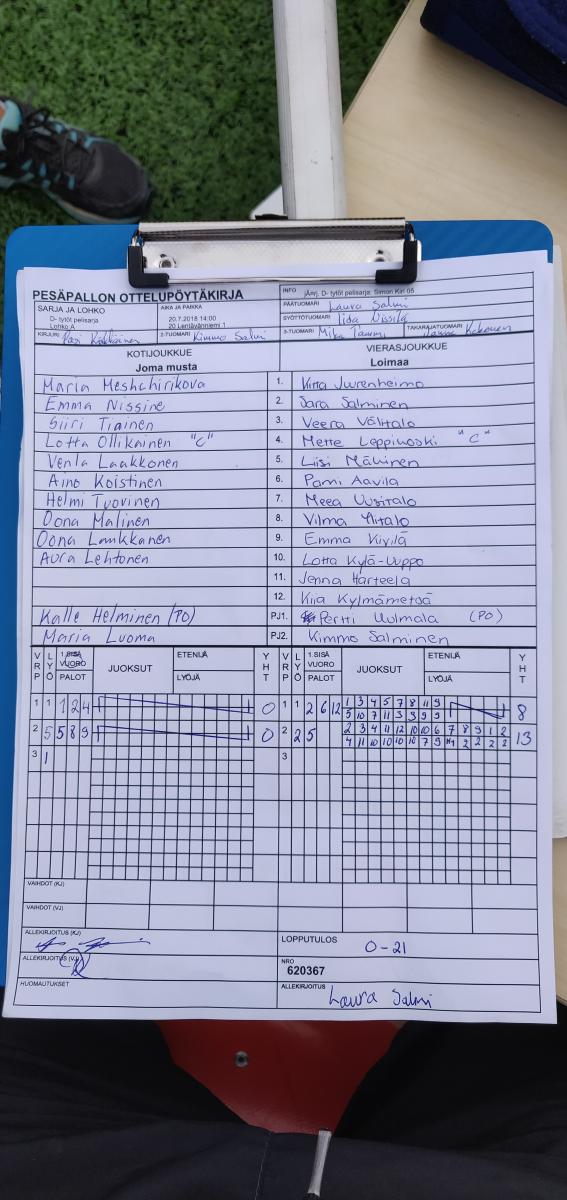 PESÄPALLON OTTELUPÖYTÄKIRJA
INFO jÄrnj. D- tytöt pelisarja: Simon Kiri 05
PÄÄTUOMARI Laura Salmi
SARJA JA LOHKO
D- tytöt pelisarja
Lohko A
AIKA JA PAIKKA
20.7.2018 14:00
20 Lentävänniemi 1
SYÖTTÖTUOMARI Iida Nissilä
KIRJURI Pasi
2-TUOMARI Kimmo Salmi
3-TUOMARI Mika Tammi
TAKARAJATUOMARI
KOTIJOUKKUE
Joma musta
VIERASJOUKKUE
Loimaa
Maria Meshchirikova 1. Juurenheimo
Emma Nissine 2. Sara Salminen
Siiri Tiainen 3. Veera Välitalo
Lotta Ollikainen "C" 4. Mette Leppikoski "C"
Venla Laakkonen 5. Liisi Mäkinen
Aino Koistinen 6. Pami Aavila
Helmi Tuovinen 7. Meea Uusitalo
Oona Malinen 8. Vilma Ylitalo
Oona Lankkanen 9. Emma Kivilä
Aura Lehtonen 10. Lotta Kylä-Uuppo
11. Jenna Harteela
12. Kiia Kylmämetsä
Kalle Helminen (PO) PJ1. Pertti Uulmala (PO)
Maria Luoma PJ2. Kimmo Salminen
VRP LYÖ 1.SISÄ VUORO PALOT JUOKSUT ETENIJÄ LYÖJÄ YHT VRP LYÖ 1.SISÄ VUORO PALOT JUOKSUT ETENIJÄ LYÖJÄ YHT
1 1 1 2 4 0 1 1 2 6 12 1 3 4 5 7 8 11 9 8
5 10 7 11 3 3 9 9
2 5 5 8 9 0 2 2 5 2 3 4 11 12 10 10 6 7 8 9 1 2 13
4 11 10 10 10 10 7 9 2 2 2 2
3 1 3
VAIHDOT (KJ)
VAIHDOT (VJ)
ALLEKIRJOITUS (KJ)
LOPPUTULOS 0-21
ALLEKIRJOITUS (VJ)
NRO
620367
HUOMAUTUKSET
ALLEKIRJOITUS Laura Salmi